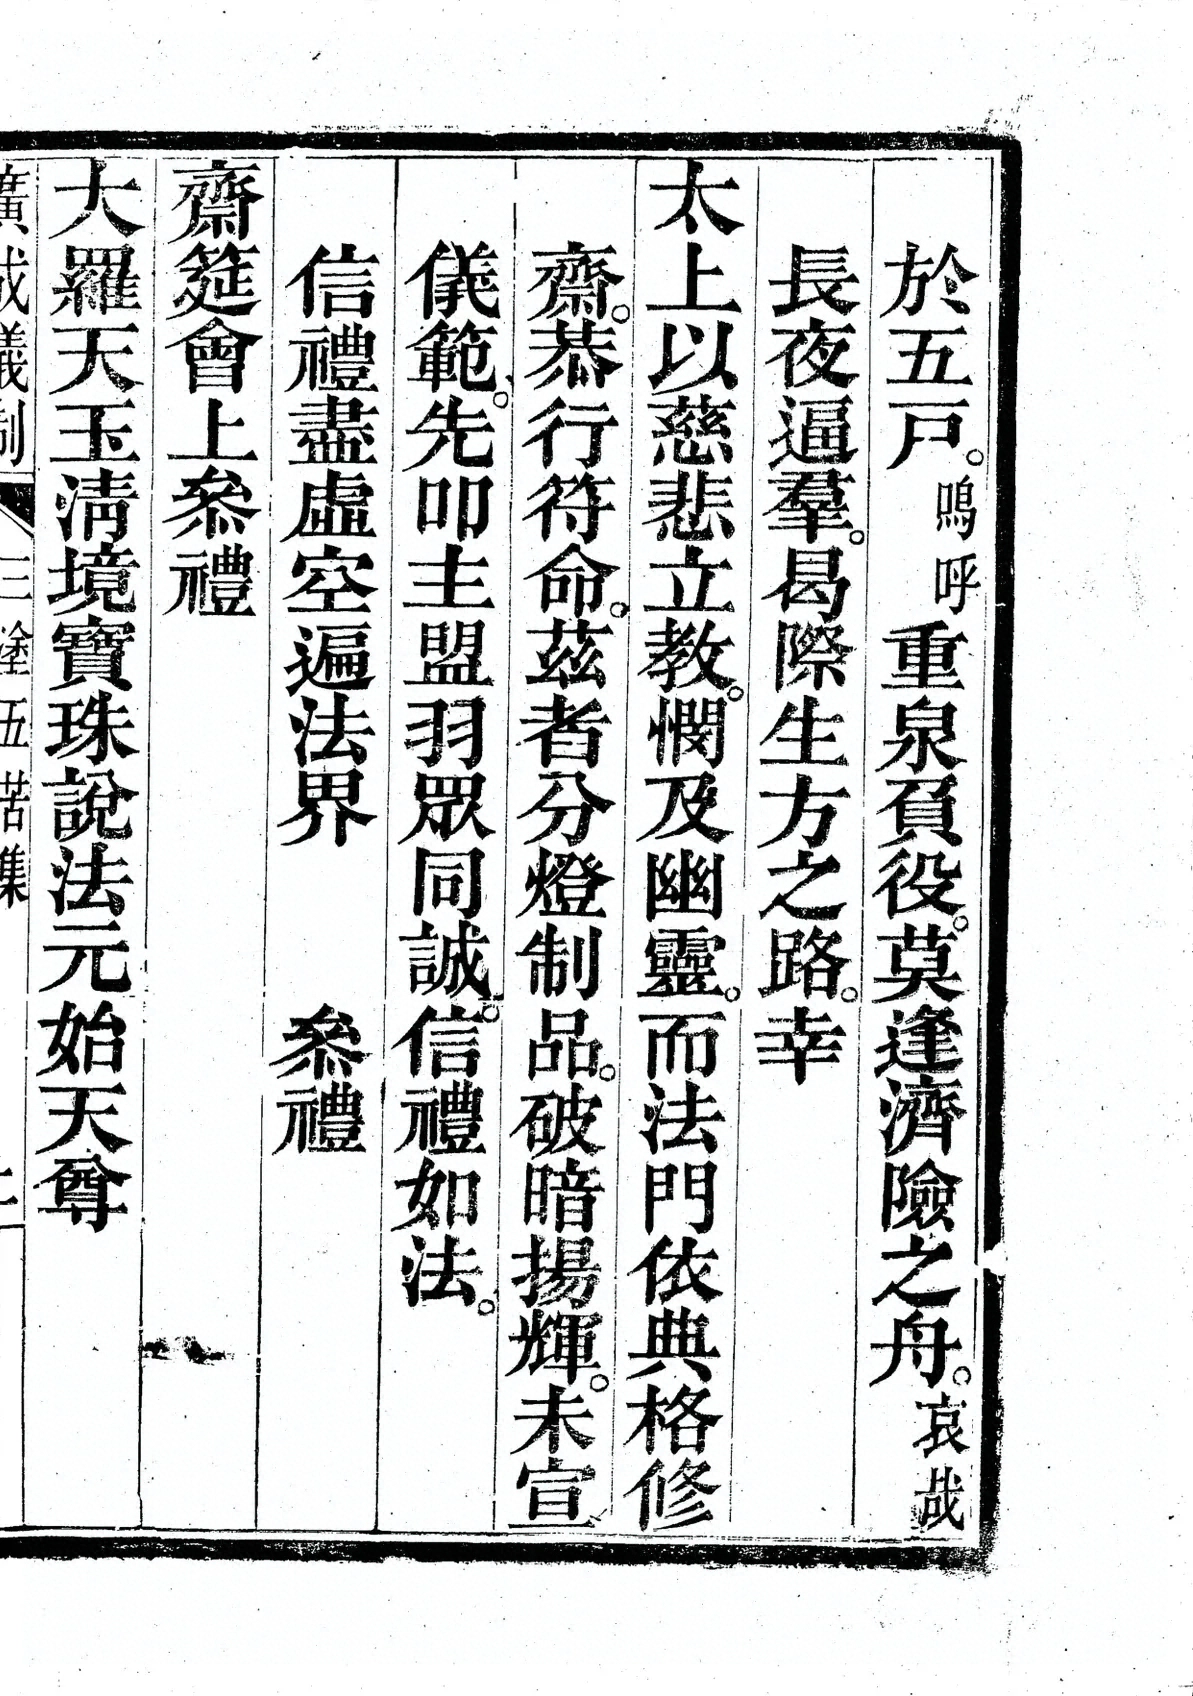 於五戸。嗚呼重泉負役。莫逢濟險之舟。哀哉
長夜逼羣。曷際生方之路。幸
太上以慈悲立教。憫及幽靈。而法門依典格修
齋。恭行符命。茲者分燈制品。破暗揚輝。未宣
儀範。先叩主盟。羽眾同誠。信禮如法。
信禮盡虛空遍法界　　叅禮
齋筵會上叅禮
大羅天玉清境寶珠說法元始天尊
廣成儀制　三塗五苦集